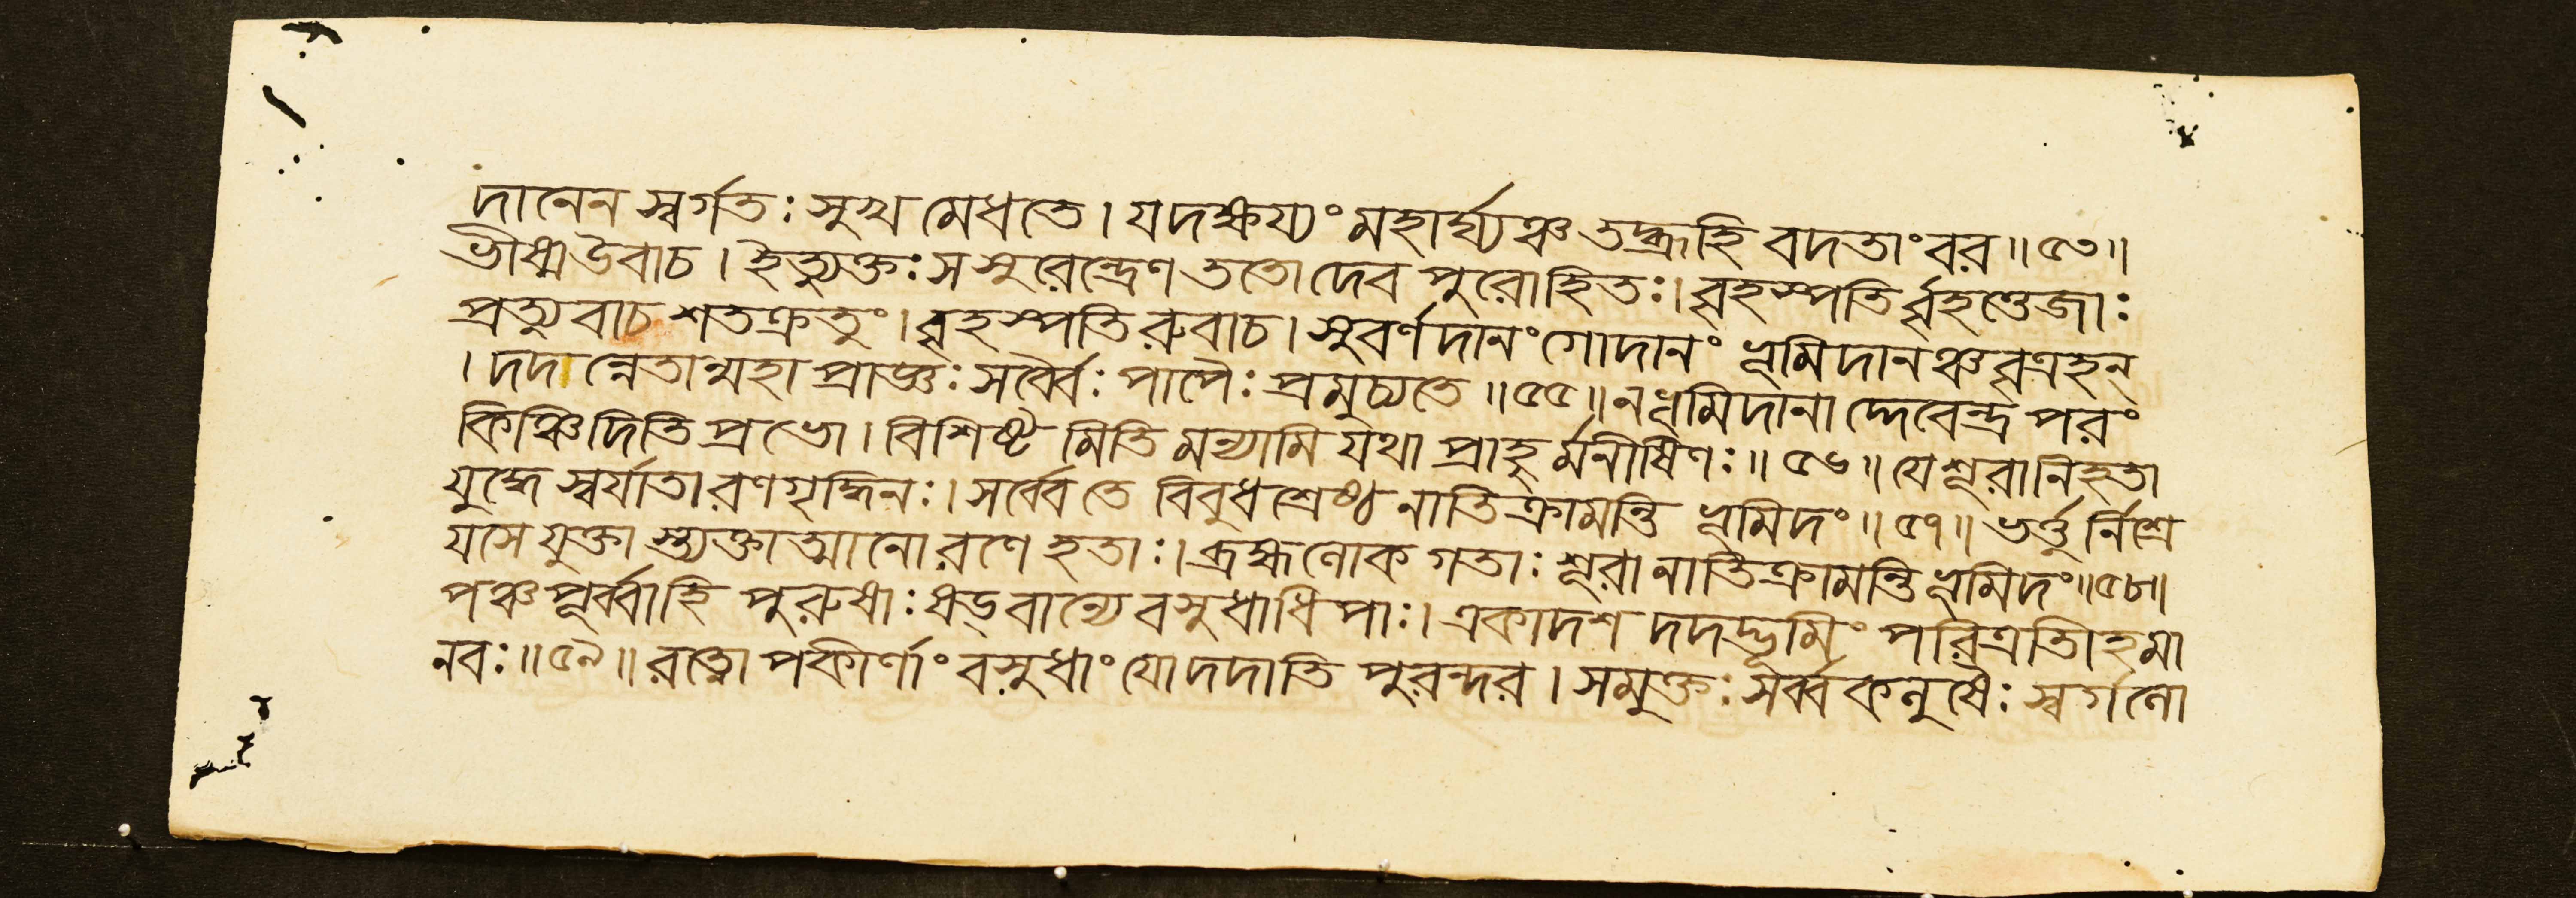 দানেন স্বর্গতঃ সুখ মেধতে। যদক্ষয্যং মহার্ঘ্যঞ্চ তদ্ব্রূহি বদতাং বর॥৫৩॥
ভীষ্ম উবাচ। ইত্যুক্তঃ স সুরেন্দ্রেণ ততো দেব পুরোহিতঃ। বৃহস্পতি র্ব্বৃহত্তেজাঃ
প্রত্যুবাচ শতক্রতুং। বৃহস্পতি রুবাচ। সুবর্ণদানং গোদানং ভূমিদানঞ্চ বৃত্রহন্
। দদান্নেতান্মহা প্রাজ্ঞঃ সর্ব্বৈঃ পাপৈঃ প্রমুচ্যতে॥৫৫॥ ন ভূমিদানা দ্দেবেন্দ্র পরং
কিঞ্চিদিতি প্রভো। বিশিষ্ট মিতি মন্যামি যথা প্রাহু র্মনীষিণঃ॥৫৬॥ যে শূরা নিহতা
যুদ্ধে স্বর্যাতা রণগৃদ্ধিনঃ। সর্ব্বে তে বিবুধ শ্রেষ্ঠ নাতিক্রামন্তি ভূমিদং॥৫৭॥ ভর্ত্তু র্নিশ্রে
যসে যুক্তা স্ত্যক্তাত্মানো রণে হতাঃ। ব্রহ্মলোক গতাঃ শূরা নাতিক্রামন্তি ভূমিদং॥৫৮॥
পঞ্চ পূর্ব্বাহি পুরুষাঃ ষড্ বান্যে বসুধাধিপাঃ। একাদশ দদদ্ভূমিং পরিত্রাতীহ মা
নবঃ॥৫৯॥ রত্নোপকীর্ণাং বসুধাং যো দদাতি পুরন্দর। স মুক্তঃ সর্ব্ব কলুষৈঃ স্বর্গলো